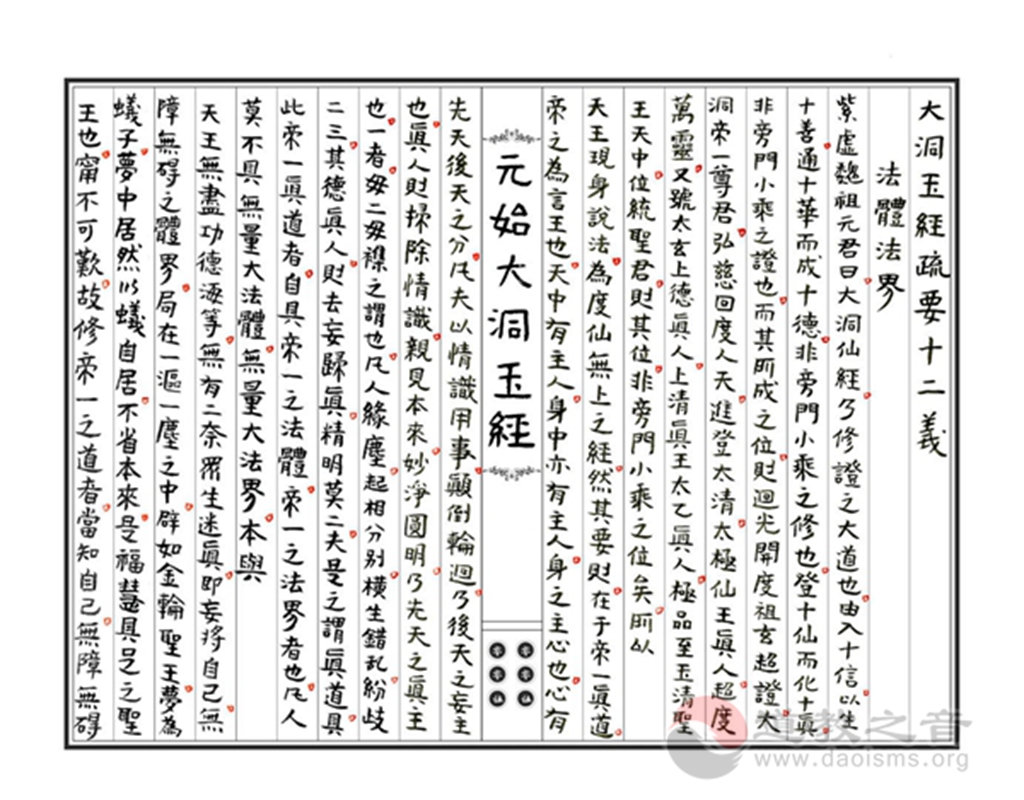 大洞玉經疏要十二義
法體法界
紫虛魏祖元君曰大洞仙經乃修證之大道也由入十信以生
十善通十華而成十德非旁門小乘之修也登十仙而化十眞
非旁門小乘之證也而其所成之位則迴光開度祖玄超證大
洞帝一尊君弘慈回度人天進登太清太極仙王眞人超度
萬靈又號太玄上德眞人上清眞王太乙眞人極品至玉清聖
王天中位統聖君則其位非旁門小乘之位矣所以
天王現身說法為度仙無上之經然其要則在于帝一眞道
帝之為言王也天中有主人身中亦有主人身之主心也心有
元始大洞玉經
先天後天之分凡夫以情識用事顚倒輪迴乃後天之妄主
也眞人則掃除情識親見本來妙淨圓明乃先天之眞主
也一者毋二毋襍之謂也凡人緣塵起相分别橫生錯亂紛歧
二三其德眞人則去妄歸眞精明莫二夫是之謂眞道具
此帝一眞道者自具帝一之法體帝一之法界者也凡人
莫不具無量大法體無量大法界本與
天王無盡功德逐等無有二奈眾生迷眞即妄將自己無
障無碍之體界局在一漚一塵之中辟如金輪聖王夢為
蟻子夢中居然以蟻自居不省本來是福慧具足之聖
王也甯不可歎故修帝一之道者當知自己無障無碍
道教之音
www.daoisms.org